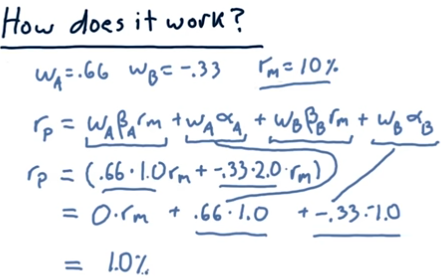 How does it work?
w_A = .66 w_B = -.33 r_m = 10%
r_p = w_A β_A r_m + w_A α_A + w_B β_B r_m + w_B α_B
r_p = (.66·1.0 r_m + -.33·2.0·r_m)
= 0·r_m + .66·1.0 + -.33·-1.0
= 1.0%